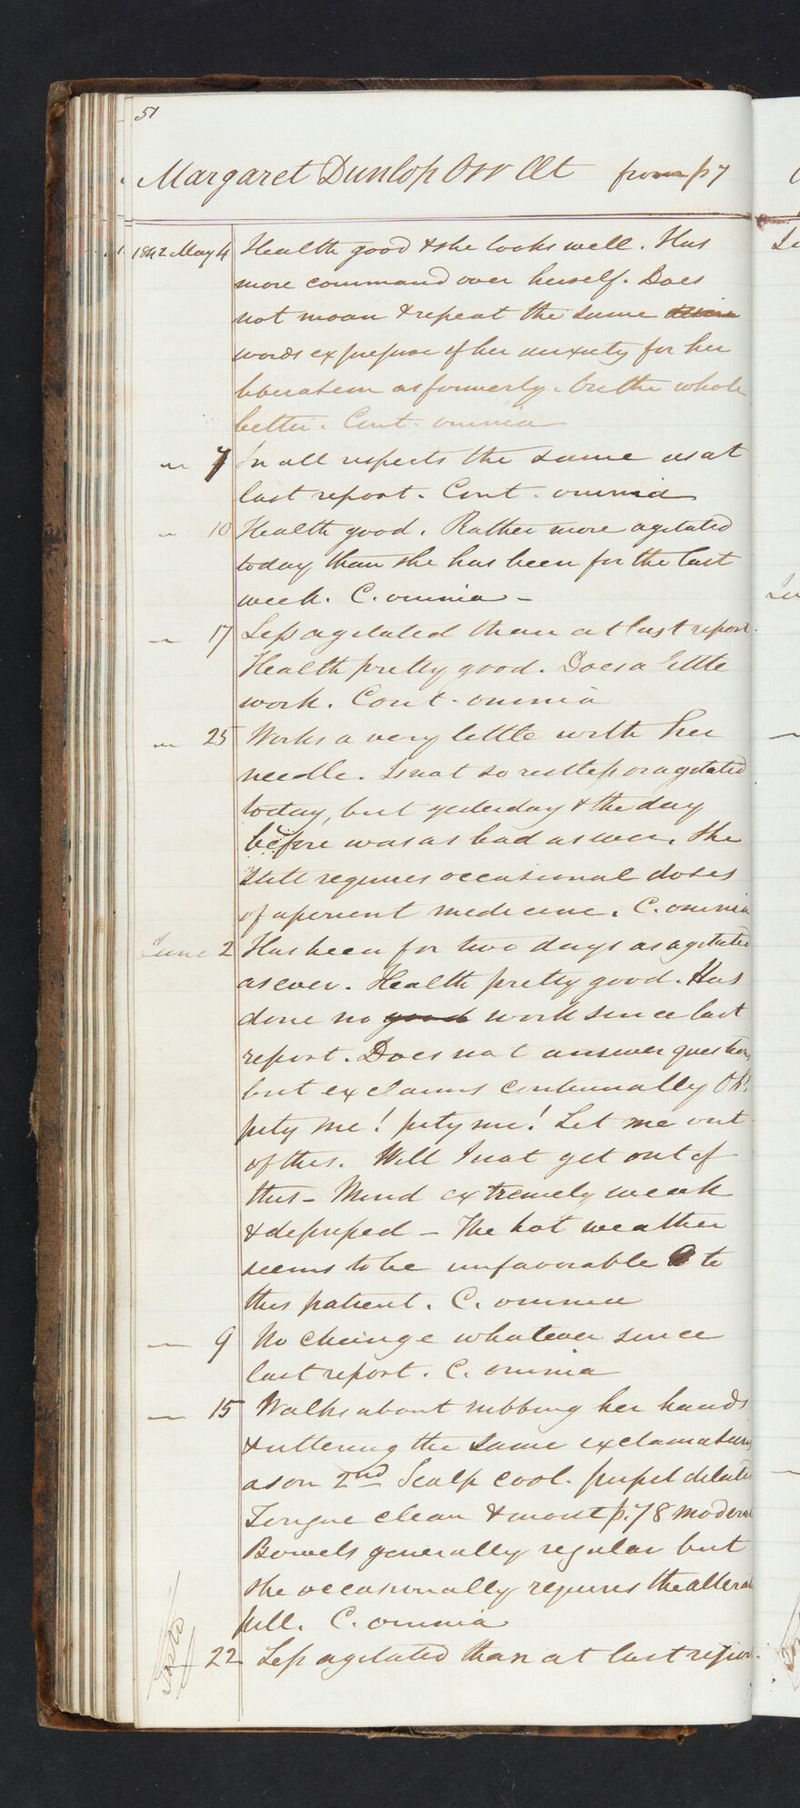 51
Margaret Dunlop Orr Æt from p 7
1842 May 4 Health good & she looks well. Has
more command over herself. Does
not moan & repeat the same
words expressive of her anxiety for her
liberation as formerly. On the whole
better. Cont. omnia
" 7 In all respects the same as at
last report. Cont. omnia
" 10 Health good. Rather more agitated
today than she has been for the last
week. C. omnia -
" 17 Less agitated than at last report.
Health pretty good. Does a little
work. Cont. omnia
" 25 Works a very little with her
needle. Is not so restless or agitated
today, but yesterday & the day
before was as bad as ever. She
still requires occasional doses
of aperient medicine. C. omnia
June 2 Has been for two days as agitated
as ever. Health pretty good. Has
done no good work since last
report. Does not answer questions
but exclaims continually Oh!
pity me! pity me! Let me out
of this. Will I not get out of
this - Mind extremely weak
& depressed - The hot weather
seems to be unfavorable to
this patient. C. omnia
— 9 No change whatever since
last report. C. omnia
— 15 Walks about rubbing her hands
& uttering the same exclamations
as on 2nd Scalp cool. pupil dilated
Tongue clean & moist p. 78 moderate
Bowels generally regular but
she occasionally requires the
pill. C. omnia
22 Less agitated than at last report.